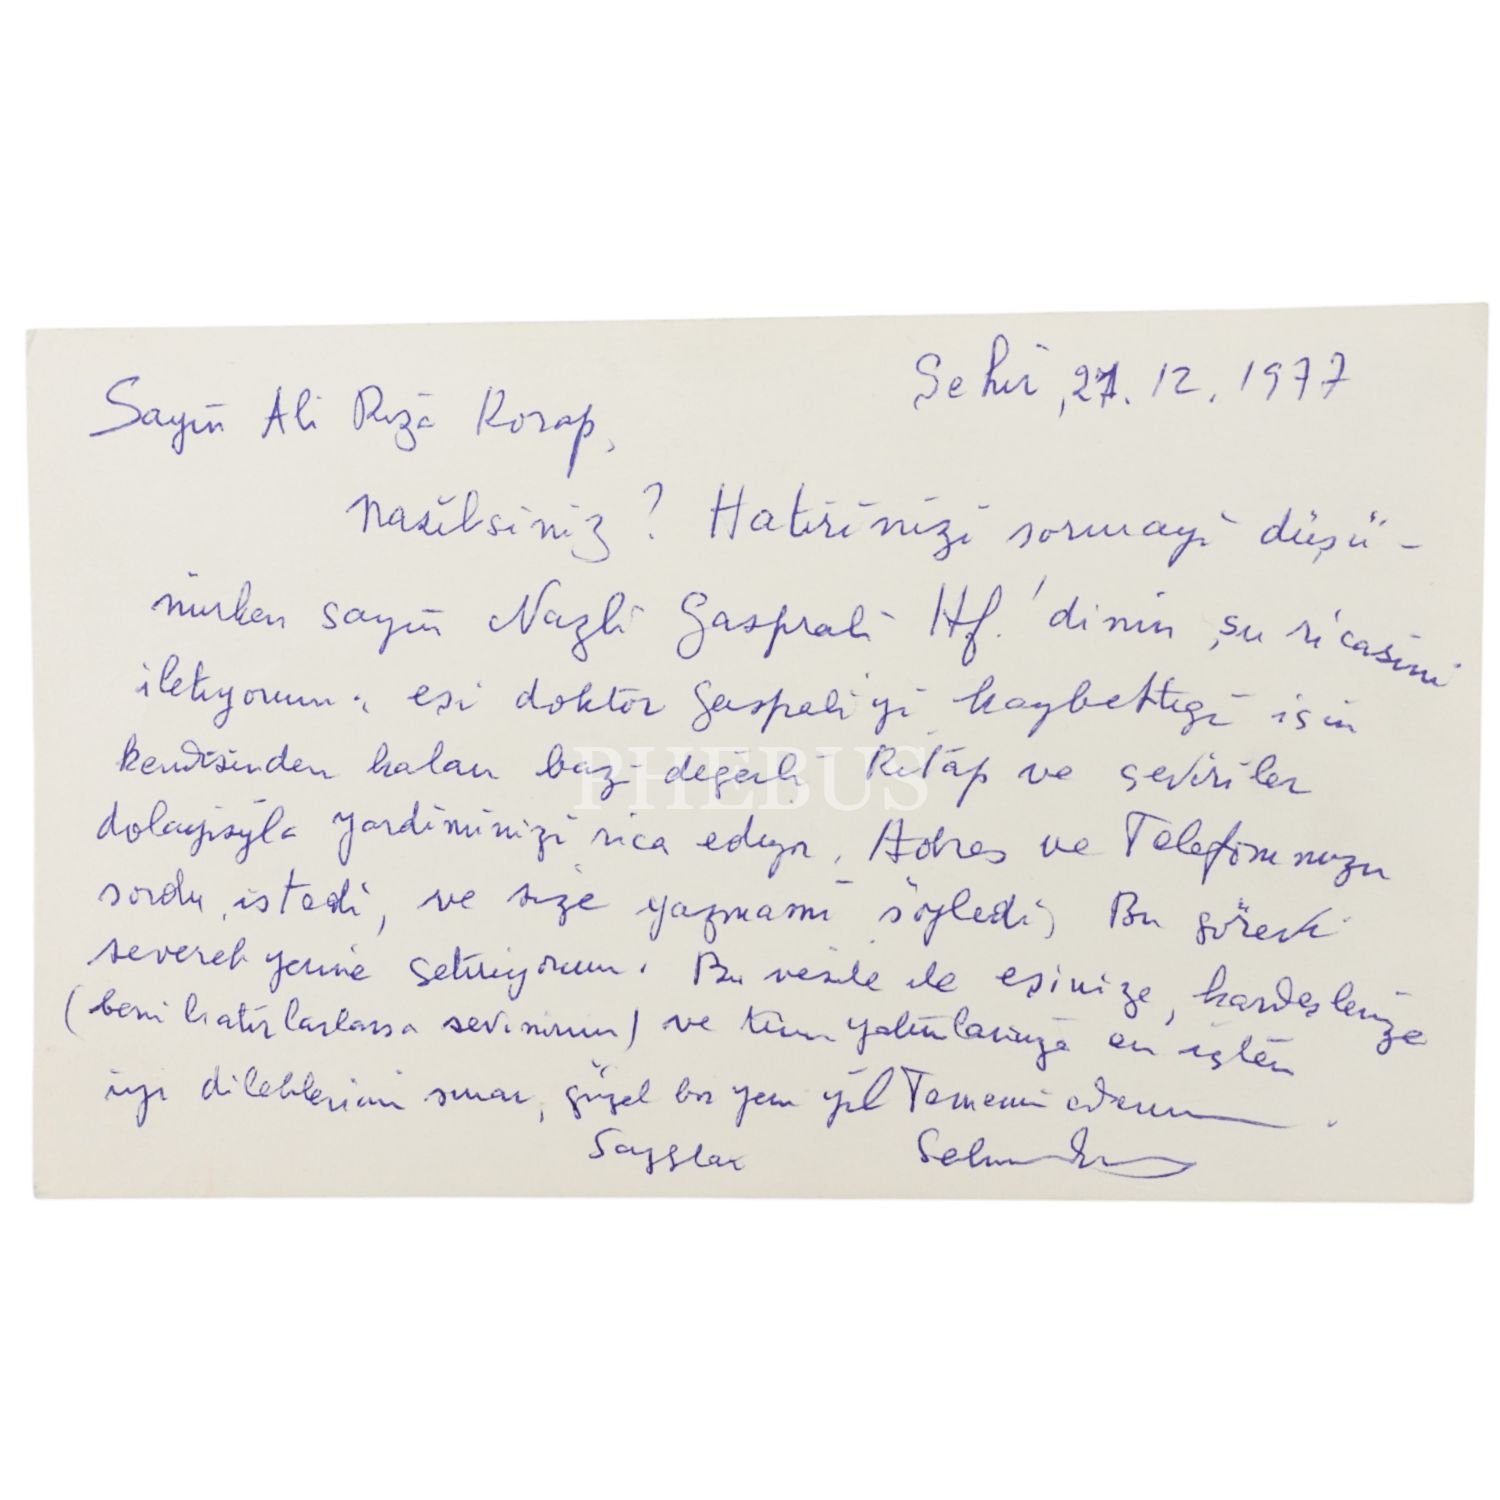 Şehir, 27. 12. 1977
Sayın Ali Rıza Korap,
Nasılsınız? Hatırınızı sormayı düşü-
nürken sayın Nazlı Gaspralı Hf.'dinin şu ricasını
iletiyorum: eşi doktor Gaspalı'yı kaybettiği için
kendisinden kalan bazı değerli kitap ve çeviriler
dolayısıyla yardımınızı rica ediyor. Adres ve Telefonunuzu
sordu, istedi, ve size yazmamı söyledi; Bu görevi
severek yerine getiriyorum. Bu vesile ile eşinize, kardeşlerinize
(beni hatırlarlarsa sevinirim) ve tüm yakınlarınıza en içten
iyi dileklerimi sunar, güzel bir yeni yıl Temenni ederim.
Saygılar
PHEBUS